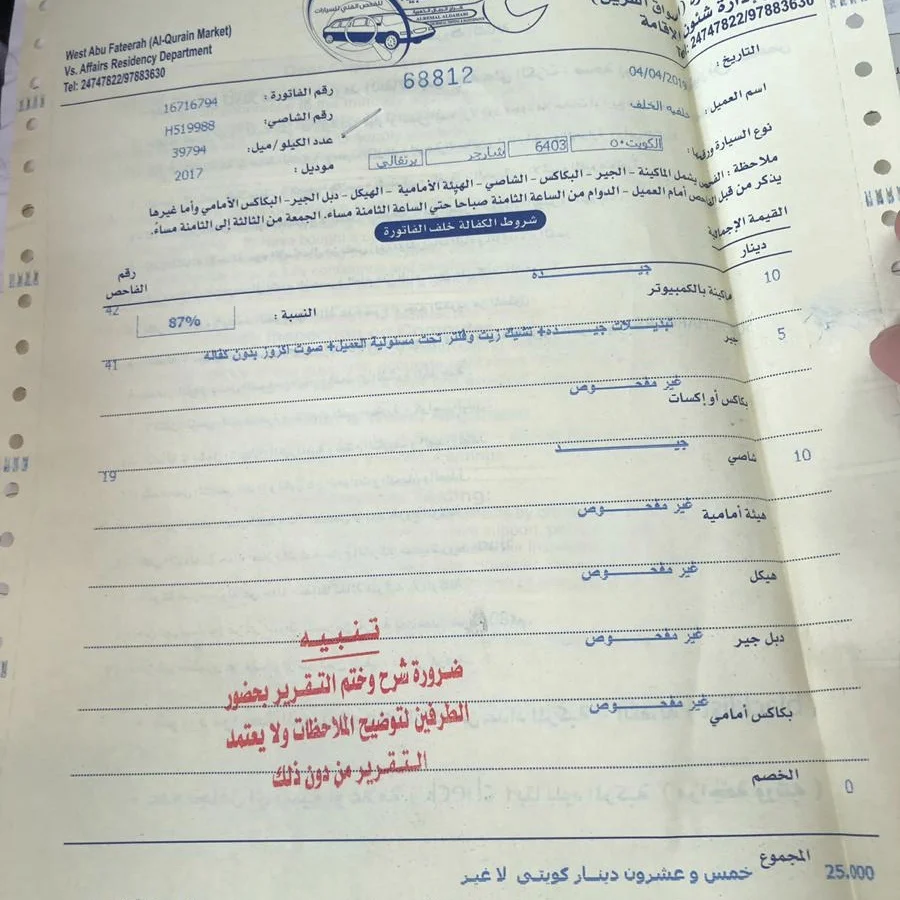 West Abu Fateerah (Al-Qurain Market)
Vs. Affairs Residency Department
Tel: 24747822/97883630
للفحص الفني للسيارات
الإقامة
Tel: 24747822/97883630
68812
التاريخ : 04/04/2019
رقم الفاتورة : 16716794
اسم العميل : خلفيه الخلف
رقم الشاصي: H519988
عدد الكيلو/ميل: 39794
الكويت٥٠ 6403 شارجر برتقالي
موديل : 2017
ملاحظة : الفحص يشمل الماكينة - الجير - البكاكس - الشاصي - الهيئة الأمامية - الهيكل - دبل الجير- البكاكس الأمامي وأما غيرها
يذكر من قبل الفاحص أمام العميل - الدوام من الساعة الثامنة صباحا حتى الساعة الثامنة مساء. الجمعة من الثالثة إلى الثامنة مساء.
شروط الكفالة خلف الفاتورة
القيمة الإجمالية
دينار
رقم الفاحص
10 ماكينة بالكمبيوتر جيـــده 42
النسبة : 87%
5 جير تبديلات جيـــده+ تشيك زيت وفلتر تحت مسئولية العميل+ صوت اكزوز بدون كفاله 41
بكاكس أو إكسات غير مفحـــوص
10 شاصي جيـــد 19
هيئة أمامية غير مفحـــوص
هيكل غير مفحـــوص
دبل جير غير مفحـــوص
بكاكس أمامي غير مفحـــوص
تـنـبـيـه
ضرورة شرح وختم التـقـرير بحضور
الطرفين لتوضيح الملاحظات ولا يعتمد
التـقـرير من دون ذلك
الخصم 0
المجموع خمس و عشرون دينـار كويتي لا غير 25.000